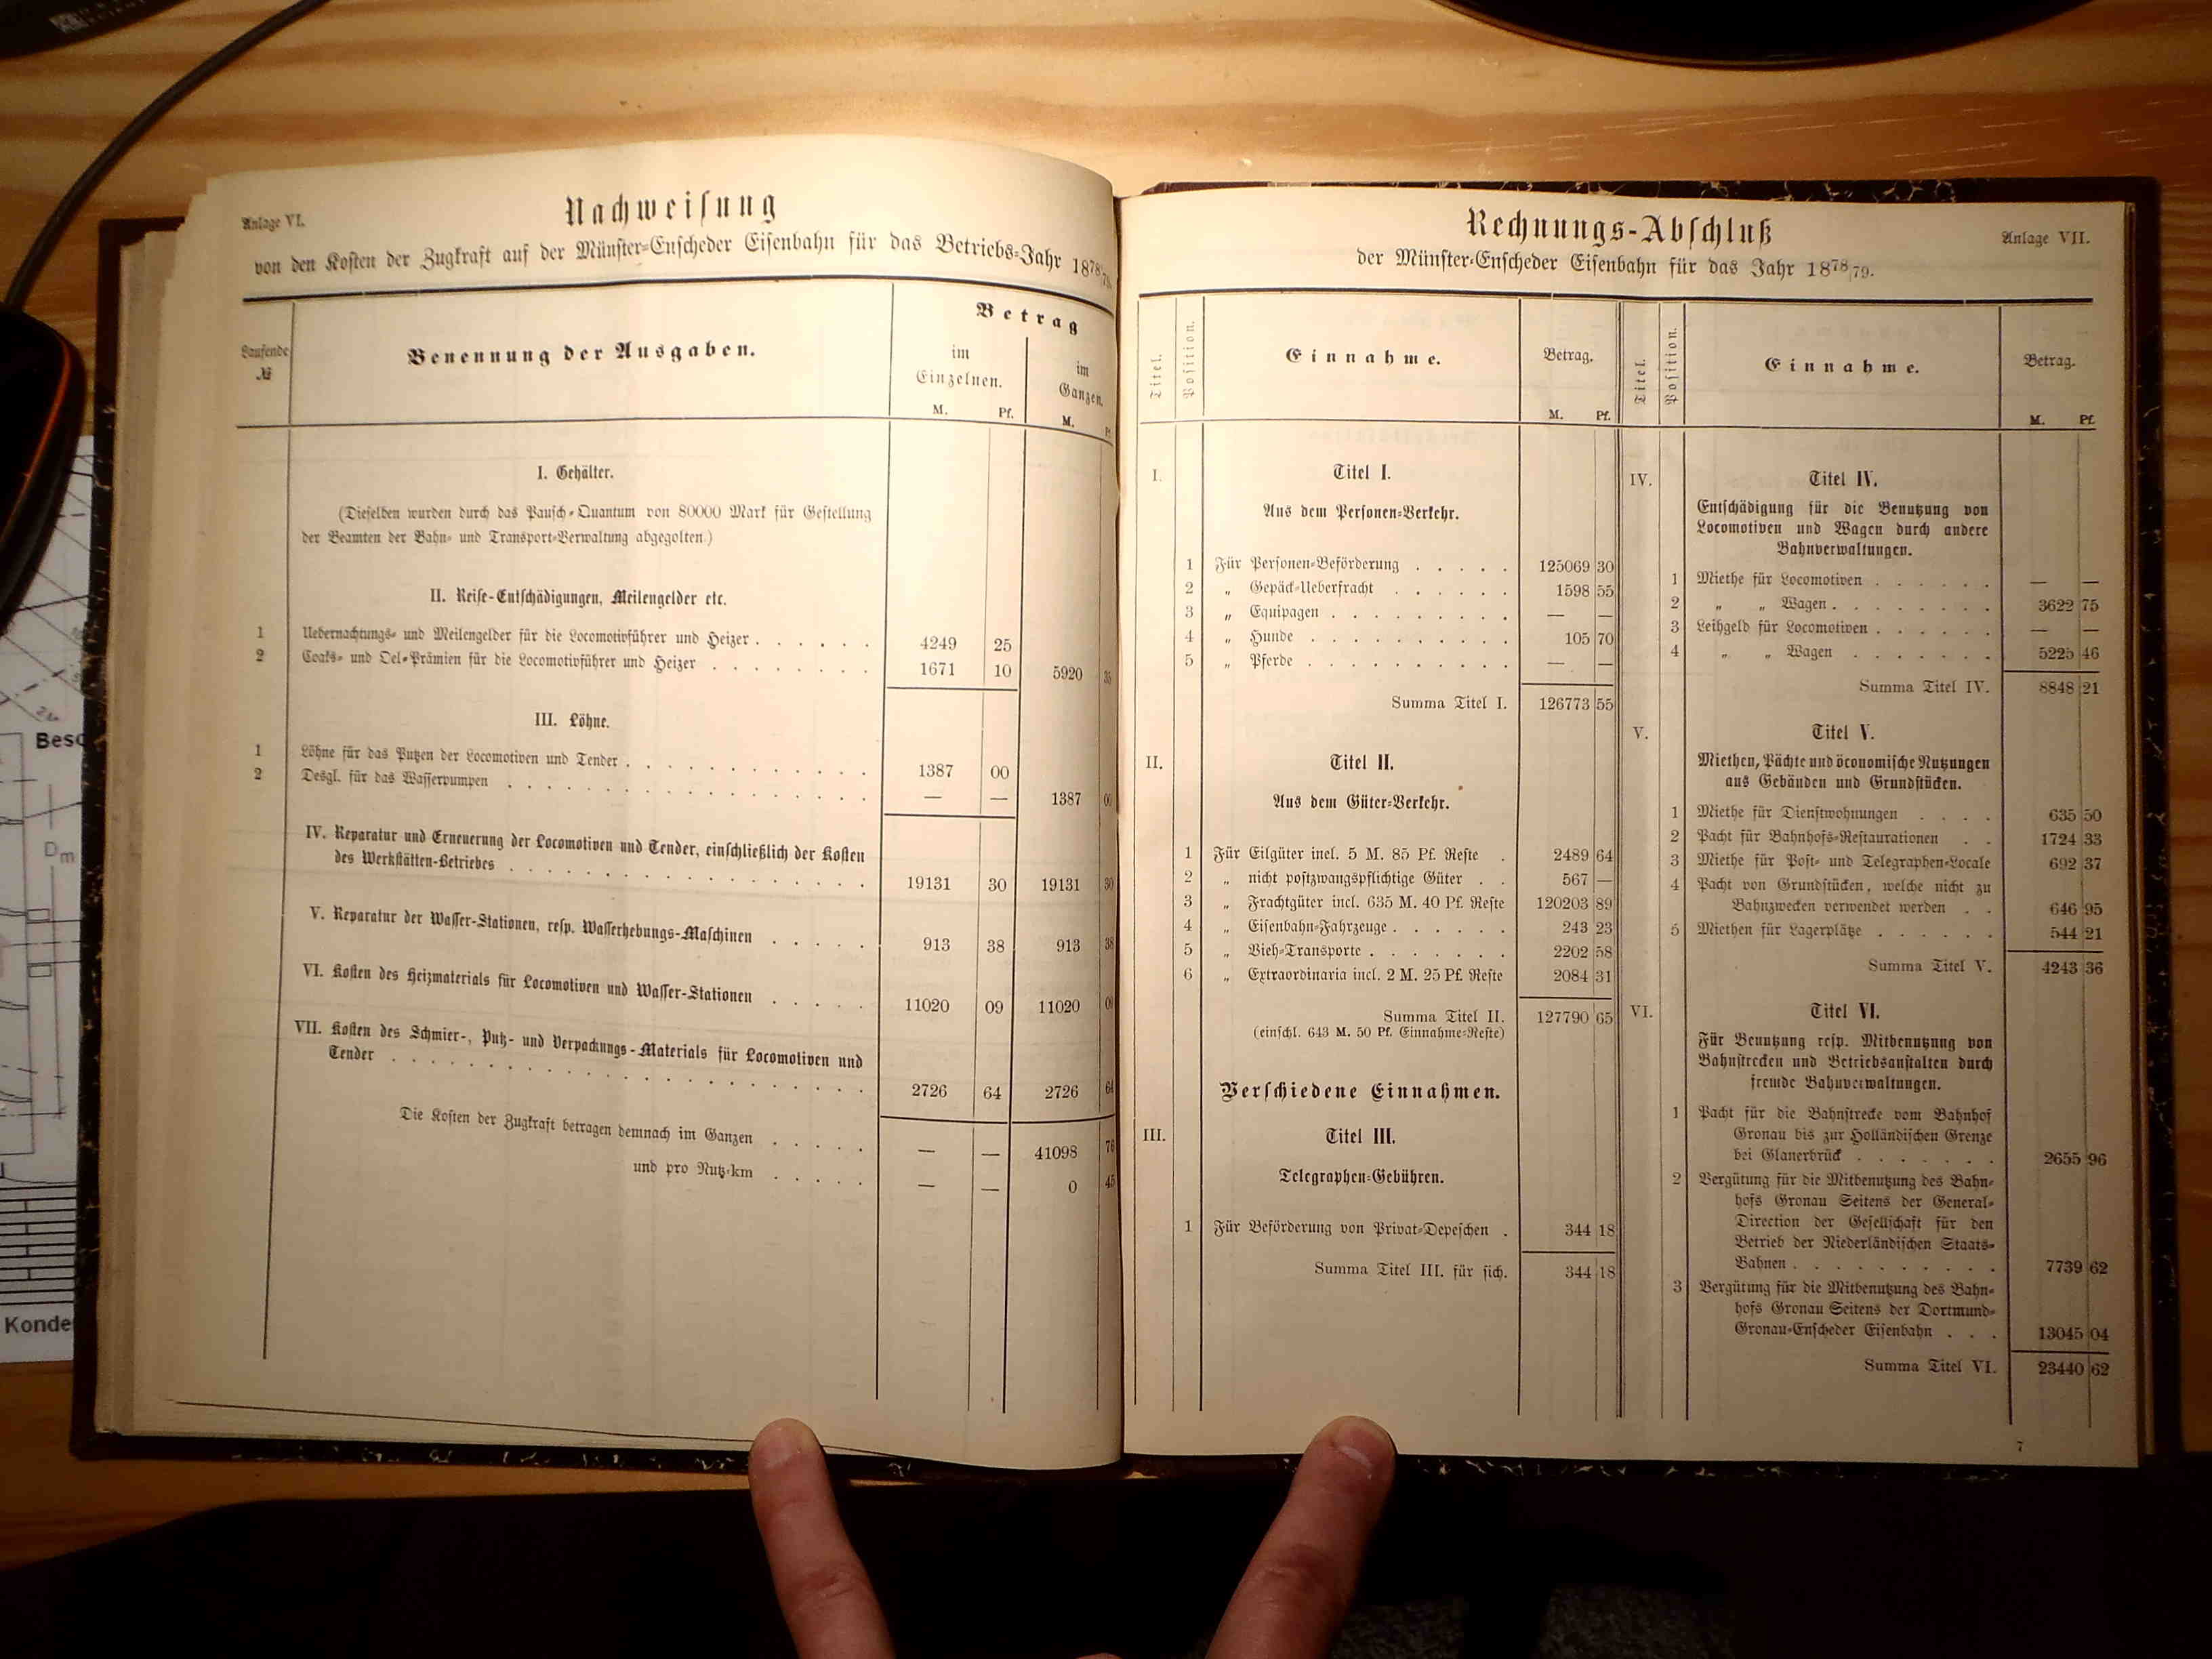 Anlage VI.
Nachweisung
von den Kosten der Zugkraft auf der Münster-Enscheder Eisenbahn für das Betriebs-Jahr 1878/79.
Laufende №
Benennung der Ausgaben.
Betrag
im Einzelnen.
im Ganzen.
M. Pf. M. Pf.
I. Gehälter.
(Dieselben wurden durch das Pausch-Quantum von 80000 Mark für Gestellung
der Beamten der Bahn- und Transport-Verwaltung abgegolten.)
II. Reise-Entschädigungen, Meilengelder etc.
1 Uebernachtungs- und Meilengelder für die Locomotivführer und Heizer . . . . . . 4249 25
2 Coaks- und Oel-Prämien für die Locomotivführer und Heizer . . . . . . . 1671 10 5920 35
III. Löhne.
1 Löhne für das Putzen der Locomotiven und Tender . . . . . . . . . . . 1387 00
2 Desgl. für das Wasserpumpen . . . . . . . . . . . . . . . . — — 1387 00
IV. Reparatur und Erneuerung der Locomotiven und Tender, einschließlich der Kosten
des Werkstätten-Betriebes . . . . . . . . . . . . . . . . 19131 30 19131 30
V. Reparatur der Wasser-Stationen, resp. Wasserhebungs-Maschinen . . . . . 913 38 913 38
VI. Kosten des Heizmaterials für Locomotiven und Wasser-Stationen . . . . . 11020 09 11020 09
VII. Kosten des Schmier-, Putz- und Verpackungs-Materials für Locomotiven und
Tender . . . . . . . . . . . . . . . . . . . . 2726 64 2726 64
Die Kosten der Zugkraft betragen demnach im Ganzen . . . . . — — 41098 76
und pro Nutz-km . . . . . — — 0 45
Rechnungs-Abschluß
Anlage VII.
der Münster-Enscheder Eisenbahn für das Jahr 1878/79.
Titel.
Position.
Einnahme.
Betrag.
M. Pf.
I. Titel I.
Aus dem Personen-Verkehr.
1 Für Personen-Beförderung . . . . . 125069 30
2 „ Gepäck-Ueberfracht . . . . . . 1598 55
3 „ Equipagen . . . . . . . . . — —
4 „ Hunde . . . . . . . . . . 105 70
5 „ Pferde . . . . . . . . . . — —
Summa Titel I. 126773 55
II. Titel II.
Aus dem Güter-Verkehr.
1 Für Eilgüter incl. 5 M. 85 Pf. Reste . 2489 64
2 „ nicht postzwangspflichtige Güter . . 567 —
3 „ Frachtgüter incl. 635 M. 40 Pf. Reste 120203 89
4 „ Eisenbahn-Fahrzeuge . . . . . . 243 23
5 „ Vieh-Transporte . . . . . . . 2202 58
6 „ Extraordinaria incl. 2 M. 25 Pf. Reste 2084 31
Summa Titel II. 127790 65
(einschl. 643 M. 50 Pf. Einnahme-Reste)
Verschiedene Einnahmen.
III. Titel III.
Telegraphen-Gebühren.
1 Für Beförderung von Privat-Depeschen . 344 18
Summa Titel III. für sich. 344 18
Titel.
Position.
Einnahme.
Betrag.
M. Pf.
IV. Titel IV.
Entschädigung für die Benutzung von
Locomotiven und Wagen durch andere
Bahnverwaltungen.
1 Miethe für Locomotiven . . . . . . — —
2 „ „ Wagen . . . . . . . . 3622 75
3 Leihgeld für Locomotiven . . . . . . — —
4 „ „ Wagen . . . . . . . 5225 46
Summa Titel IV. 8848 21
V. Titel V.
Miethen, Pächte und öconomische Nutzungen
aus Gebänden und Grundstücken.
1 Miethe für Dienstwohnungen . . . . 635 50
2 Pacht für Bahnhofs-Restaurationen . . 1724 33
3 Miethe für Post- und Telegraphen-Locale 692 37
4 Pacht von Grundstücken, welche nicht zu
Bahnzwecken verwendet werden . . 646 95
5 Miethen für Lagerplätze . . . . . . 544 21
Summa Titel V. 4243 36
VI. Titel VI.
Für Benutzung resp. Mitbenutzung von
Bahnstrecken und Betriebsanstalten durch
fremde Bahnverwaltungen.
1 Pacht für die Bahnstrecke vom Bahnhof
Gronau bis zur Holländischen Grenze
bei Glanerbrück . . . . . . . 2655 96
2 Vergütung für die Mitbenutzung des Bahn-
hofs Gronau Seitens der General-
Direction der Gesellschaft für den
Betrieb der Niederländischen Staats-
Bahnen . . . . . . . . . . 7739 62
3 Vergütung für die Mitbenutzung des Bahn-
hofs Gronau Seitens der Dortmund-
Gronau-Enscheder Eisenbahn . . . 13045 04
Summa Titel VI. 23440 62
7
Besc
Dm
Konde